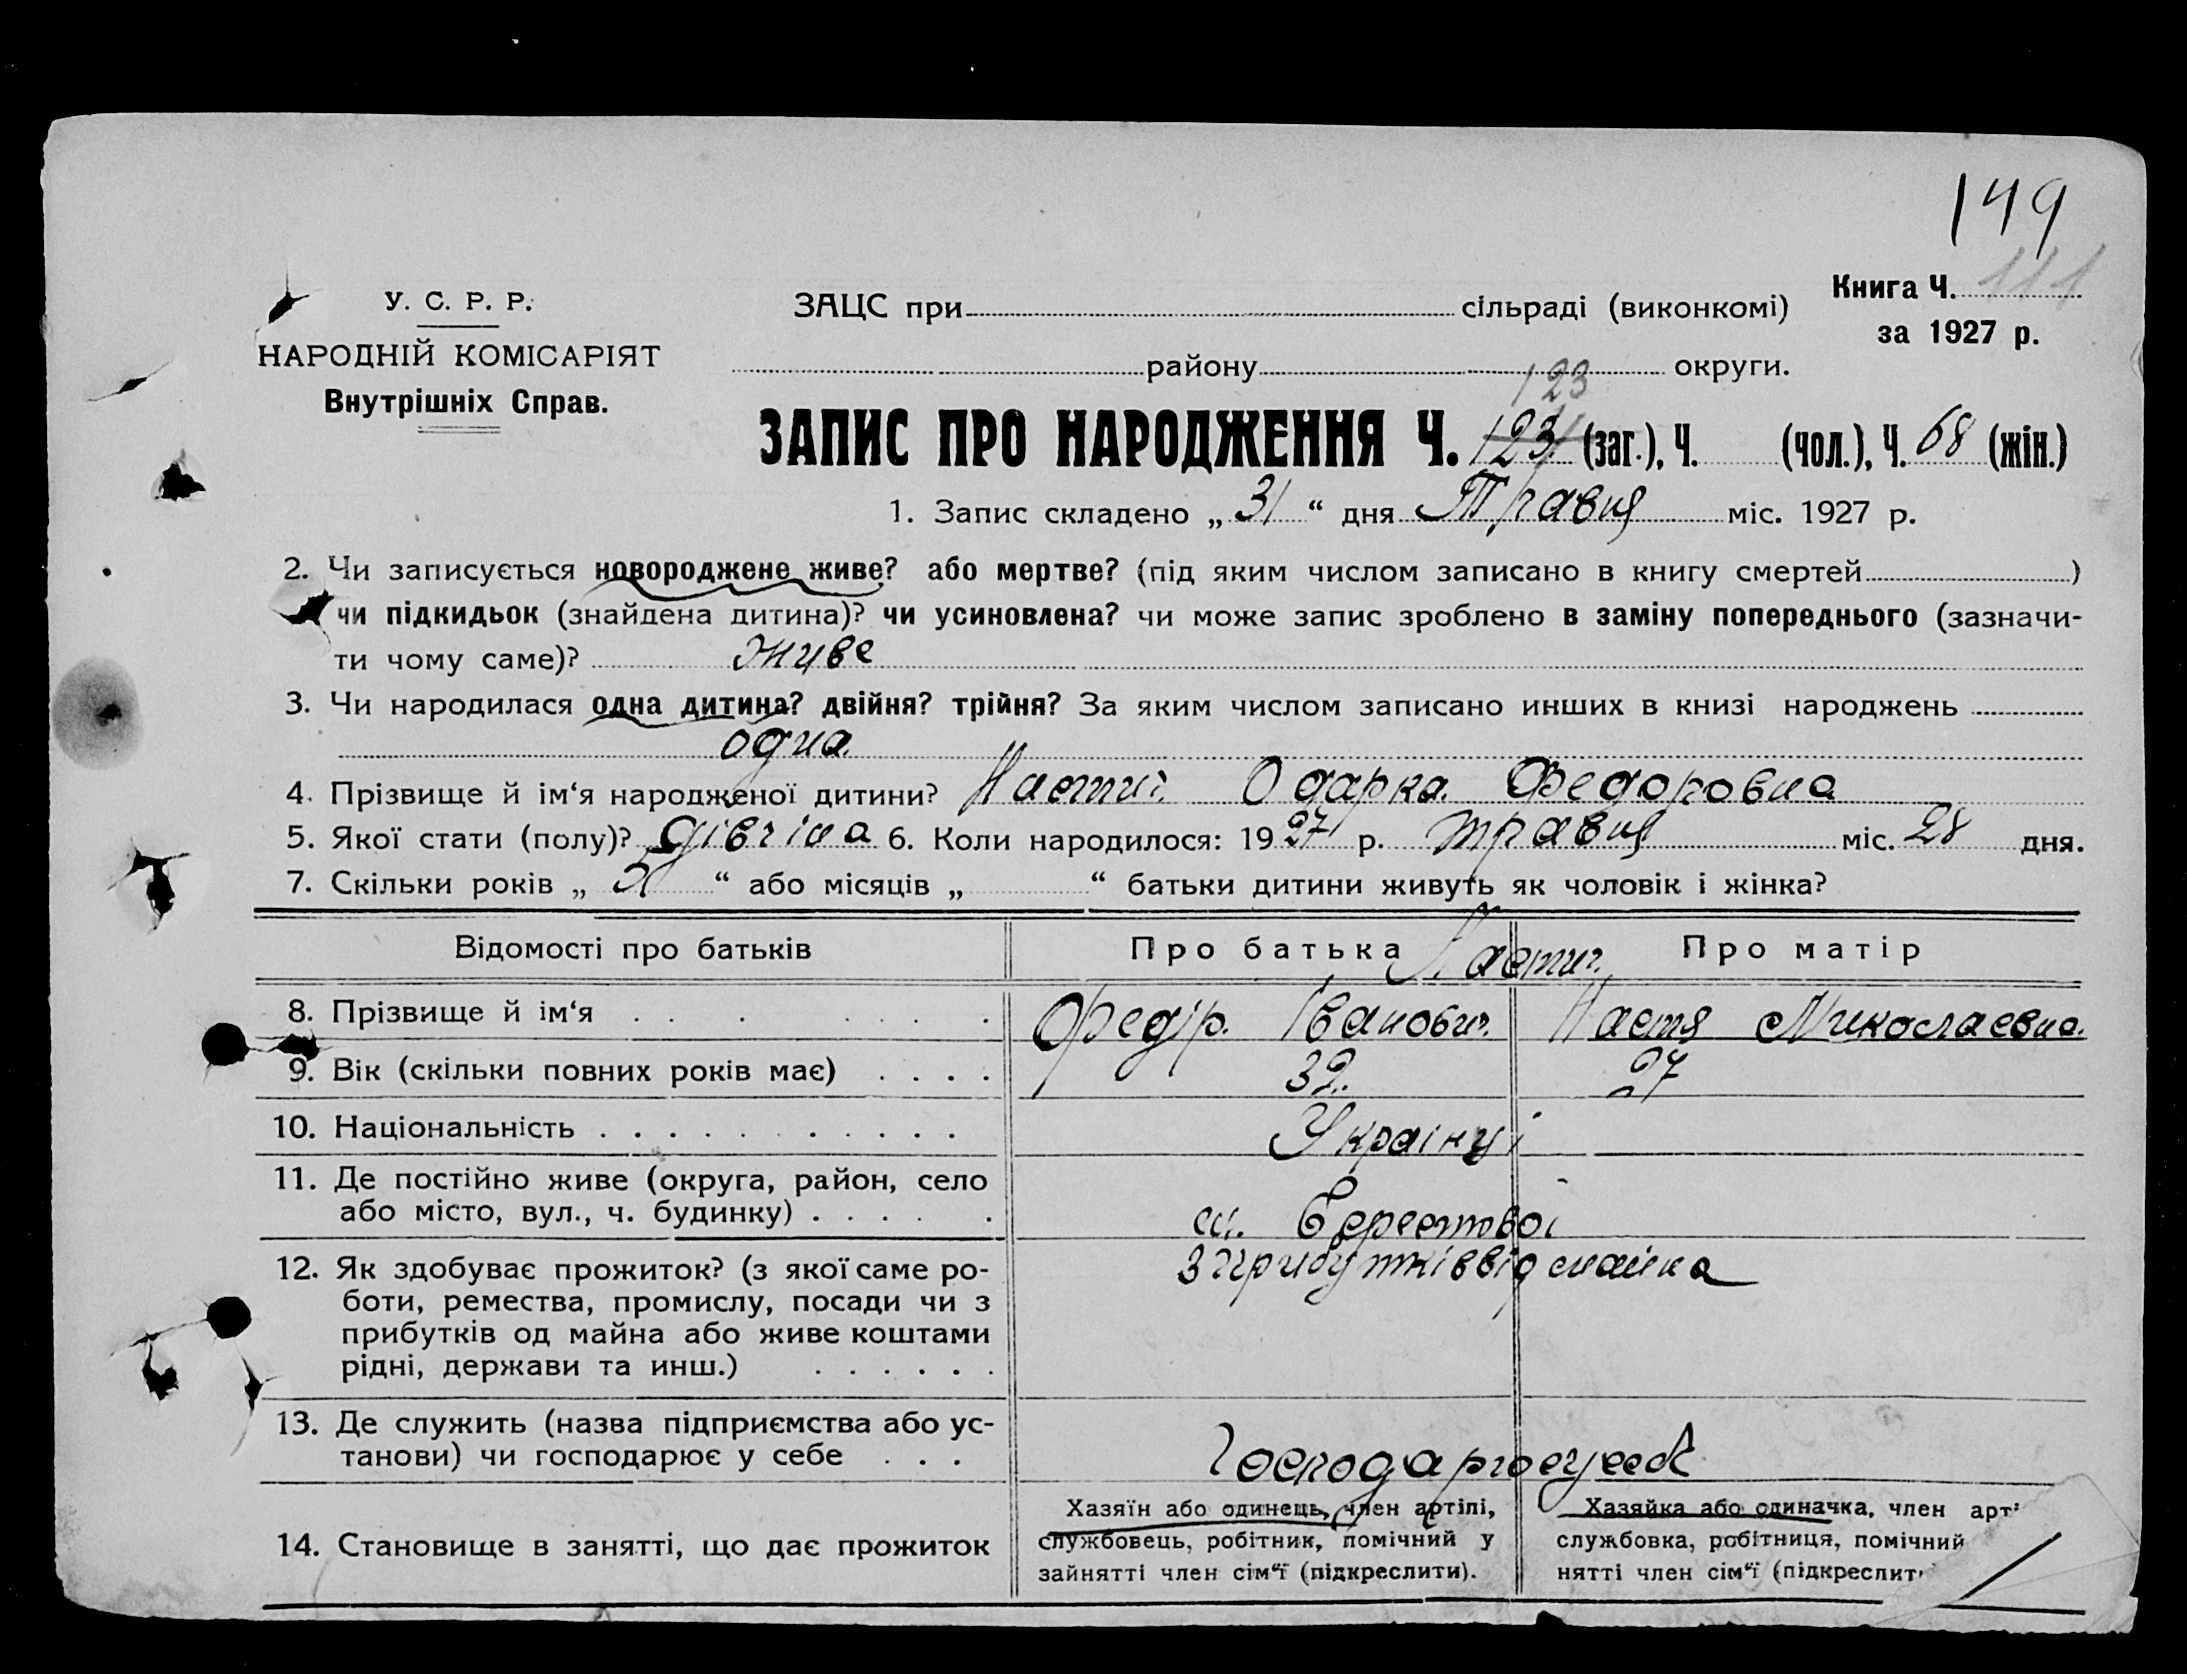 149
У. С. Р. Р.
НАРОДНІЙ КОМІСАРІЯТ
Внутрішніх Справ.
ЗАЦС при сільраді (виконкомі)
району округи.
Книга Ч. 111
за 1927 р.
123
ЗАПИС ПРО НАРОДЖЕННЯ Ч. 123 (заг.), Ч. (чол.), Ч. 68 (жін.)
1. Запис складено „ 31 “ дня Травня міс. 1927 р.
2. Чи записується новороджене живе? або мертве? (під яким числом записано в книгу смертей )
чи підкидьок (знайдена дитина)? чи усиновлена? чи може запис зроблено в заміну попереднього (зазначи-
ти чому саме)? живе
3. Чи народилася одна дитина? двійня? трійня? За яким числом записано инших в книзі народжень
одна
4. Прізвище й ім‘я народженої дитини? Одарка Федоровна
5. Якої стати (полу)? дівчіна 6. Коли народилося: 1927 р. травня міс. 28 дня.
7. Скільки років „ “ або місяців „ “ батьки дитини живуть як чоловік і жінка?
Відомості про батьків
Про батька
Про матір
8. Прізвище й ім‘я Федір Іванович Настя Миколаевна
9. Вік (скільки повних років має) 32. 27
10. Національність Українці
11. Де постійно живе (округа, район, село
або місто, вул., ч. будинку) Берестової
12. Як здобуває прожиток? (з якої саме ро-
боти, ремества, промислу, посади чи з
прибутків од майна або живе коштами
рідні, держави та инш.)
з прибутків від майна
13. Де служить (назва підприємства або ус-
танови) чи господарює у себе
14. Становище в занятті, що дає прожиток
Хазяїн або одинець, член артілі,
службовець, робітник, помічний у
зайнятті член сім“ї (підкреслити).
Хазяйка або одиначка, член арт
службовка, робітниця, помічний
нятті член сім“ї (підкреслит